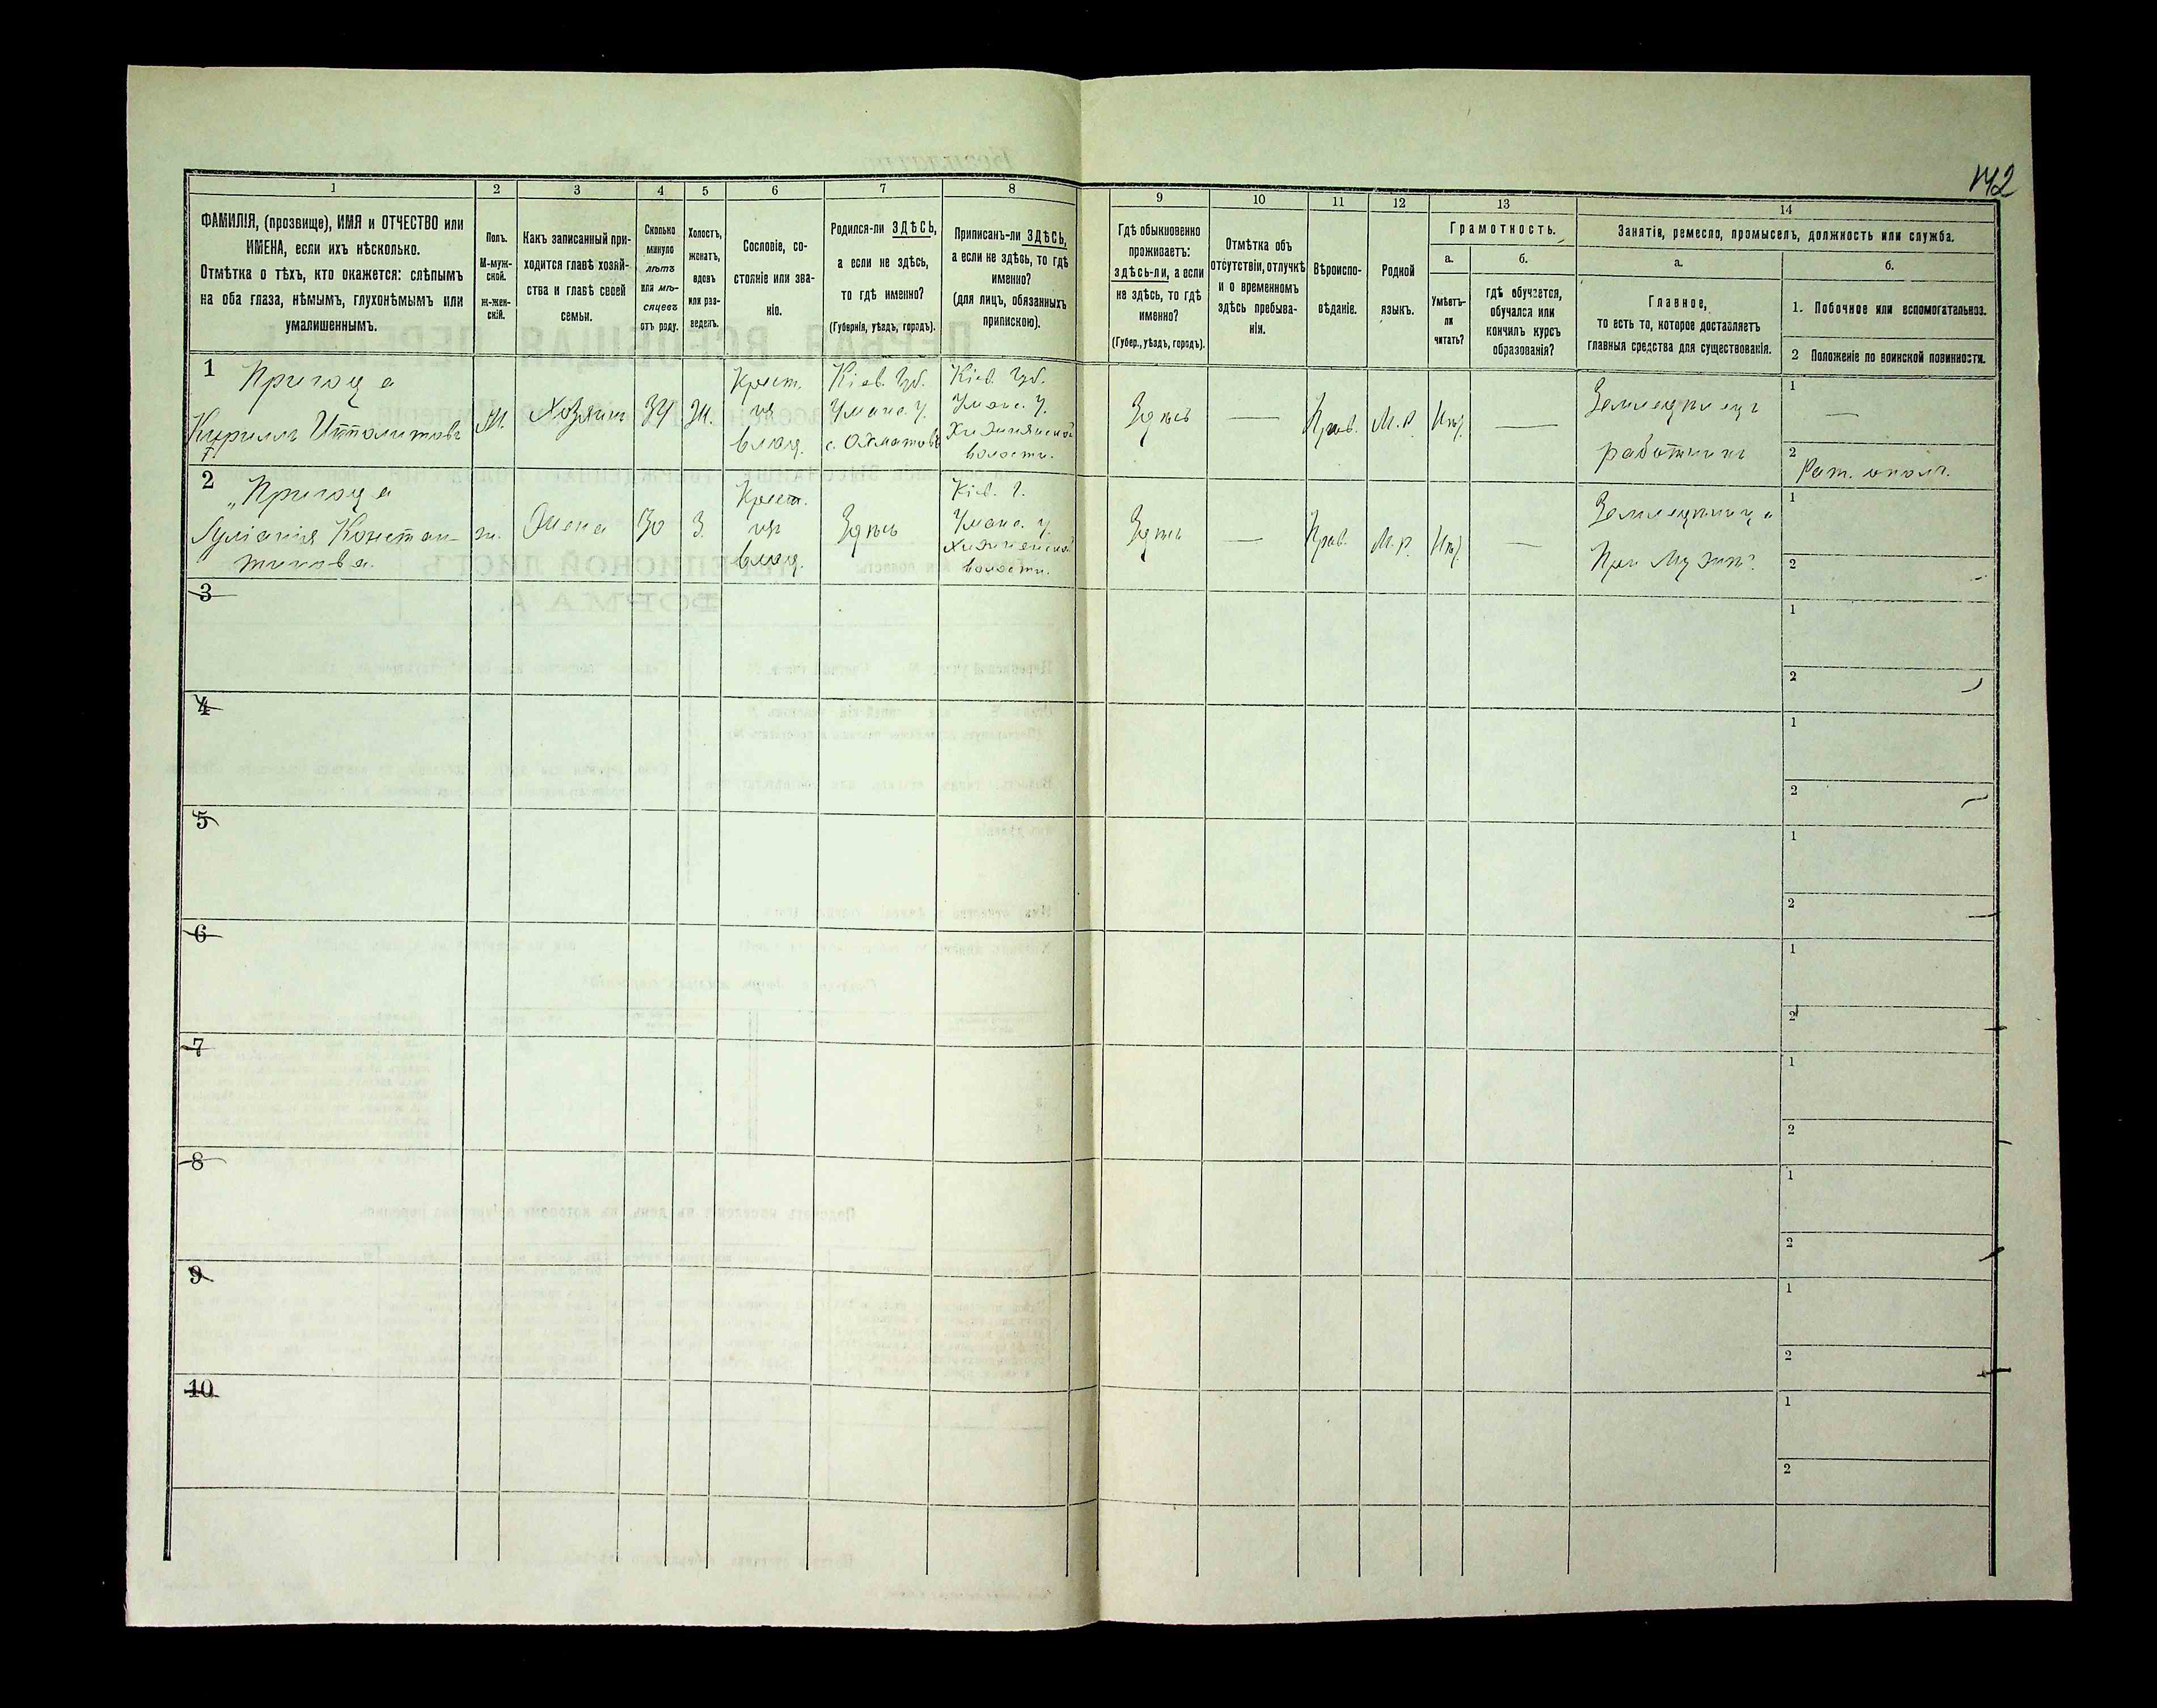 142
1 2 3 4 5 6 7 8 9 10 11 12 13 14
ФАМИЛІЯ, (прозвище), ИМЯ и ОТЧЕСТВО или
ИМЕНА, если ихъ нѣсколько.
Отмѣтка о тѣхъ, кто окажется: слѣпымъ
на оба глаза, нѣмымъ, глухонѣмымъ или
умалишеннымъ.
Полъ.
М-муж-
ской.
ж-жен-
скій.
Какъ записанный при-
ходится главѣ хозяй-
ства и главѣ своей
семьи.
Сколько
минуло
лѣтъ
или мѣ-
сяцевъ
отъ роду.
Холостъ,
женатъ,
вдовъ
или раз-
веденъ.
Сословіе, со-
стояніе или зва-
ніе.
Родился-ли ЗДѢСЬ,
а если не здѣсь,
то гдѣ именно?
(Губернія, уѣздъ, городъ).
Приписанъ-ли ЗДѢСЬ,
а если не здѣсь, то гдѣ
именно?
(для лицъ, обязанныхъ
припискою).
Гдѣ обыкновенно
проживаетъ:
здѣсь-ли, а если
не здѣсь, то гдѣ
именно?
(Губер., уѣздъ, городъ).
Отмѣтка объ
отсутствіи, отлучкѣ
и о временномъ
здѣсь пребыва-
ніи.
Вѣроиспо-
вѣданіе.
Родной
языкъ.
Грамотность.
а.
Умѣетъ-
ли
читать?
б.
гдѣ обучается,
обучался или
кончилъ курсъ
образованія?
Занятія, ремесло, промыселъ, должность или служба.
а.
Главное,
то есть то, которое доставляетъ
главныя средства для существованія.
б.
1. Побочное или вспомогательное.
2 Положеніе по воинской повинности.
1
Пригоца
Кириллъ Ипполитовъ
М.
Хозяинъ
34
Ж.
Крест.
из
влад.
Кіев. Губ.
Уманс. У.
с. Охматовѣ
Кіев. Губ.
Уманс. У.
волости.
Здѣсь
—
Прав.
М. Р.
Нѣт
—
Земледѣлецъ
работникъ
1
—
2
Рат. ополч.
2
Пригоца
Константи-
нова.
ж.
Жена
30
З.
Крест.
из
влад.
Здѣсь
Кіев. Г.
Уманс. У.
волости.
Здѣсь
—
Прав.
М. р.
Нѣт
—
При мужѣ
1
2
3
1
2
4
1
2
5
1
2
6
1
2
7
1
2
8
1
2
9
1
2
10
1
2